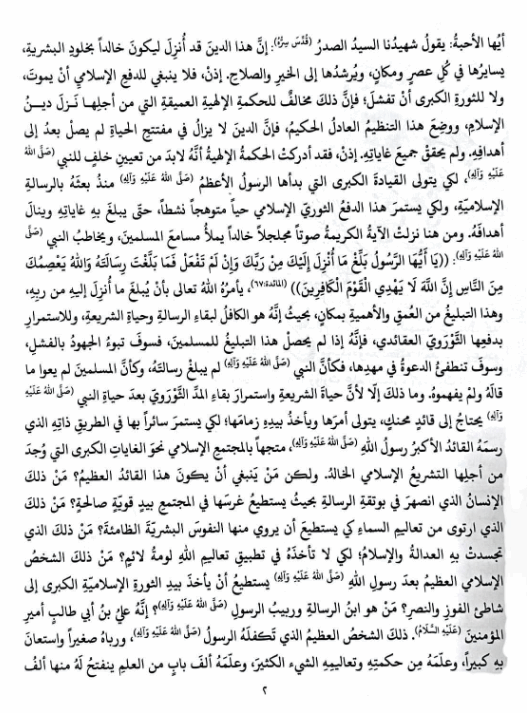 أيُها الأحبةُ: يقولُ شهيدُنا السيدُ الصدرُ (قُدّسَ سِرُّهُ): إنَّ هذا الدينَ قد أُنزِلَ ليكونَ خالداً بخلودِ البشريةِ،
يسايرُها في كُلِ عصرٍ ومكانٍ، ويُرشدُها إلى الخيرِ والصلاحِ. إذنْ، فلا ينبغي للدفعِ الإسلامي أنْ يموتَ،
ولا للثورةِ الكبرى أنْ تفشلَ؛ فإنَّ ذلكَ مخالفٌ للحكمةِ الإلهيةِ العميقةِ التي من أجلِها نَزلَ ديـنُ
الإسلامِ، ووضِعَ هذا التنظيمُ العادلُ الحكيمُ، فإنَّ الدينَ لا يزالُ في مفتتحِ الحياةِ لم يصلْ بعدُ إلى
أهدافِهِ. ولم يحققْ جميعَ غاياتِهِ. إذنْ، فقد أدركتْ الحكمةُ الإلهيةُ أنَّهُ لابدَ من تعيينِ خلفٍ للنبي (صَلَّى اللهُ
عَلَيْهِ وَآلِهِ)، لكي يتولى القيادةَ الكبرى التي بدأها الرسولُ الأعظمُ (صَلَّى اللهُ عَلَيْهِ وَآلِهِ) منذُ بعثَهُ بالرسالةِ
الإسلاميّةِ، ولكي يستمرَ هذا الدفعُ الثوريّ الإسلامي حياً متوهجاً نشطاً، حتّى يبلغَ بهِ غاياتِهِ وينالَ
أهدافَهُ. ومن هنا نزلتْ الآيةُ الكريمةُ صوتاً مجلجلاً خالداً يملأُ مسامعَ المسلمينَ، ويخاطبُ النبي (صَلَّى
اللهُ عَلَيْهِ وَآلِهِ): ((يَا أَيُّهَا الرَّسُولُ بَلِّغْ مَا أُنْزِلَ إِلَيْكَ مِنْ رَبِّكَ وَإِنْ لَمْ تَفْعَلْ فَمَا بَلَّغْتَ رِسَالَتَهُ وَاللهُ يَعْصِمُكَ
مِنَ النَّاسِ إِنَّ اللهَ لَا يَهْدِي الْقَوْمَ الْكَافِرِينَ)) (المائدة:٦٧)، يأمرُهُ اللهُ تعالى بأنْ يُبلغَ ما أُنزلَ إليهِ من ربِهِ،
وهذا التبليغُ من العُمقِ والأهميةِ بمكانٍ، بحيثُ إنَّهُ هو الكافلُ لبقاءِ الرسالةِ وحياةِ الشريعةِ، وللاستمرارِ
بدفعِها الثَّوْرَويّ العقائدي، فإنَّهُ إذا لم يحصلْ هذا التبليغُ للمسلمينَ، فسوفَ تبوءُ الجهودُ بالفشلِ،
وسوفَ تنطفئُ الدعوةُ في مهدِها، فكأنَّ النبي (صَلَّى اللهُ عَلَيْهِ وَآلِهِ) لم يبلغْ رسالتَهُ، وكأنَّ المسلمينَ لم يعوا ما
قالَهُ ولمْ يفهموهُ. وما ذلكَ إلّا لأنَّ حياةَ الشريعةِ واستمرارَ بقاءِ المدِّ الثَّوْرَويّ بعدَ حياةِ النبي (صَلَّى اللهُ عَلَيْهِ
وَآلِهِ) يحتاجُ إلى قائدٍ محنكٍ، يتولى أمرَها ويأخذُ بيدِهِ زمامَها؛ لكي يستمرَ سائراً بها في الطريقِ ذاتِهِ الذي
رسمَهُ القائدُ الأكبرُ رسولُ اللهِ (صَلَّى اللهُ عَلَيْهِ وَآلِهِ)، متجهاً بالمجتمعِ الإسلامي نحوَ الغاياتِ الكبرى التي وُجدَ
من أجلِها التشريعُ الإسلامي الخالدُ. ولكن مَنْ يَنبغي أنْ يكونَ هذا القائدُ العظيمُ؟ مَنْ ذلكَ
الإنسانُ الذي انصهرَ في بوتقةِ الرسالةِ بحيثُ يستطيعُ غرسَها في المجتمعِ بيدٍ قويّةٍ صالحةٍ؟ مَنْ ذلكَ
الذي ارتوى من تعاليمِ السماءِ كي يستطيعَ أن يروي منها النفوسَ البشريّةَ الظامئةَ؟ مَنْ ذلكَ الذي
تجسدتْ بهِ العدالةُ والإسلامُ؛ لكي لا تأخذَهُ في تطبيقِ تعاليمِ اللهِ لومةُ لائمٍ؟ مَنْ ذلكَ الشخصُ
الإسلامي العظيمُ بعدَ رسولِ اللهِ (صَلَّى اللهُ عَلَيْهِ وَآلِهِ) يستطيعُ أنْ يأخذَ بيدِ الثورةِ الإسلاميّةِ الكبرى إلى
شاطئِ الفوزِ والنصرِ؟ مَنْ هو ابنُ الرسالةِ وربيبُ الرسولِ (صَلَّى اللهُ عَلَيْهِ وَآلِهِ)؟ إنَّهُ عليُّ بنُ أبي طالبٍ أميرِ
المؤمنينَ (عَلَيْهِ السَّلَامُ). ذلكَ الشخصُ العظيمُ الذي تَكفلَهُ الرسولُ (صَلَّى اللهُ عَلَيْهِ وَآلِهِ)، ورباهُ صغيراً واستعانَ
بهِ كبيراً، وعلّمَهُ مِن حكمتِهِ وتعاليمِهِ الشيءَ الكثيرَ، وعلّمَهُ ألفَ بابٍ من العلمِ ينفتحُ لهُ منها ألفُ
٢